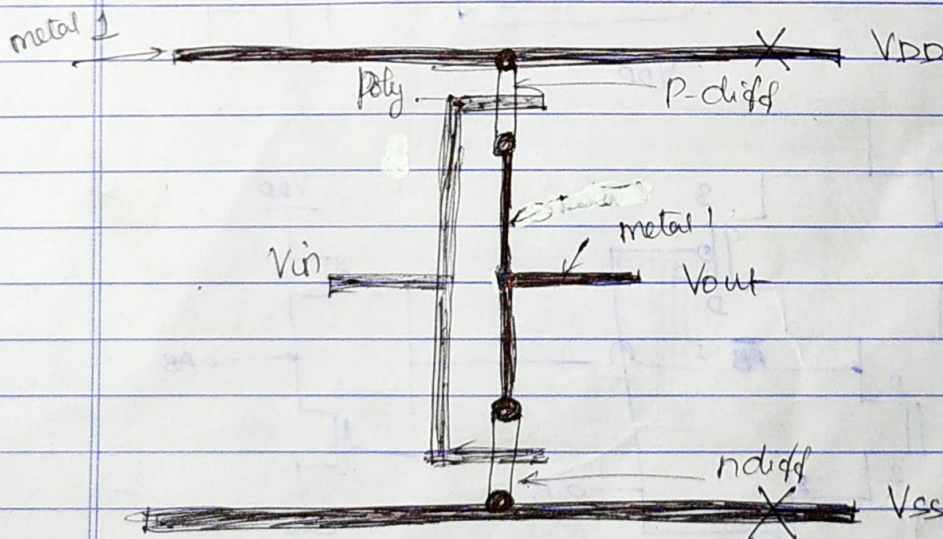 metal 1
VDD
Poly
P-diff
metal 1
Vin
Vout
ndiff
Vss